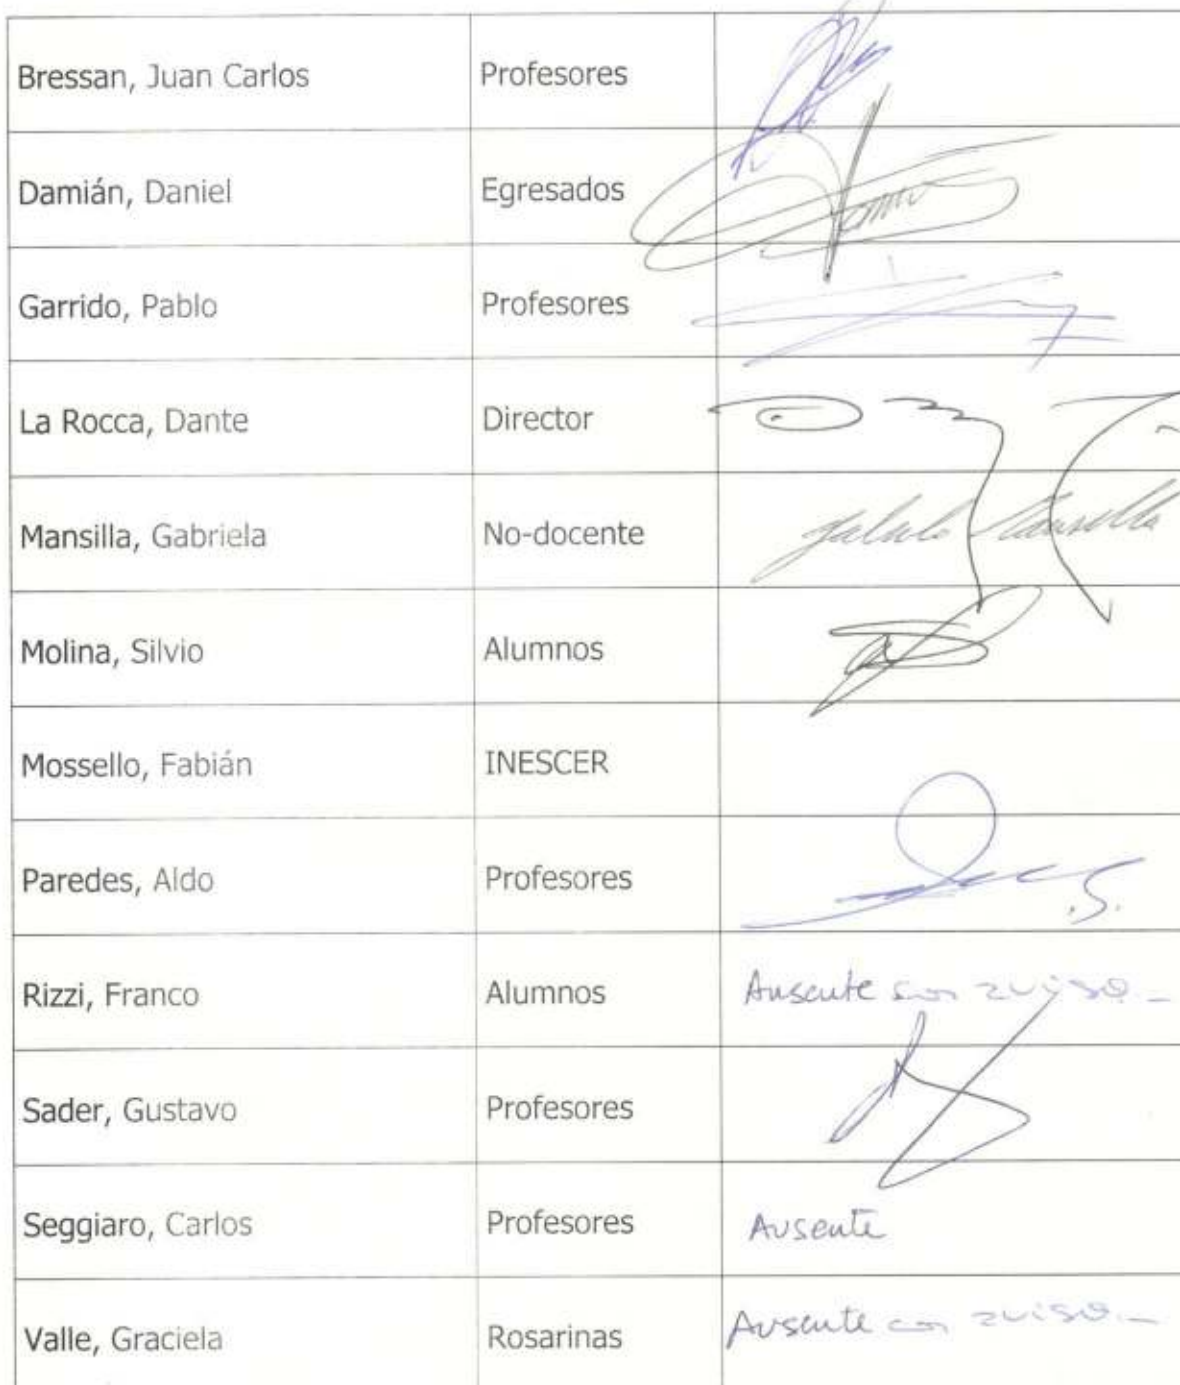 Bressan, Juan Carlos Profesores
Damián, Daniel Egresados
Garrido, Pablo Profesores
La Rocca, Dante Director
Mansilla, Gabriela No-docente Mansilla
Molina, Silvio Alumnos
Mossello, Fabián INESCER
Paredes, Aldo Profesores
Rizzi, Franco Alumnos Ausente con aviso.-
Sader, Gustavo Profesores
Seggiaro, Carlos Profesores Ausente
Valle, Graciela Rosarinas Ausente con aviso.-